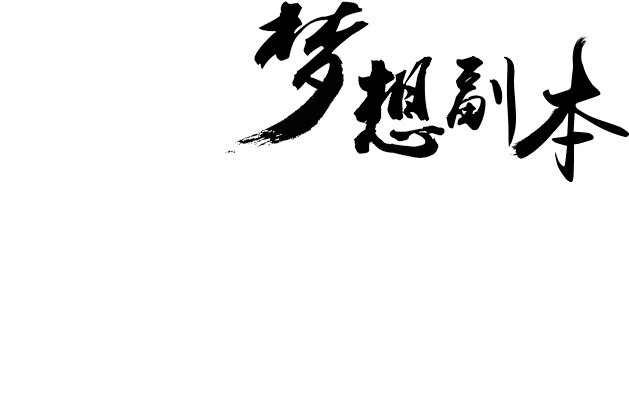 梦想副本